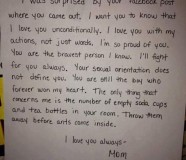 I was surprised by your facebook post
where you came out. I want you to know that
I love you unconditionally. I love you with my
actions, not just words. I'm so proud of you.
You are the bravest person I know. I'll fight
for you always. Your sexual orientation does
not define you. You are still the boy who
forever won my heart. The only thing that
concerns me is the number of empty soda cups
and tea bottles in your room. Throw them
away before ants come inside.
I love you always-
Mom